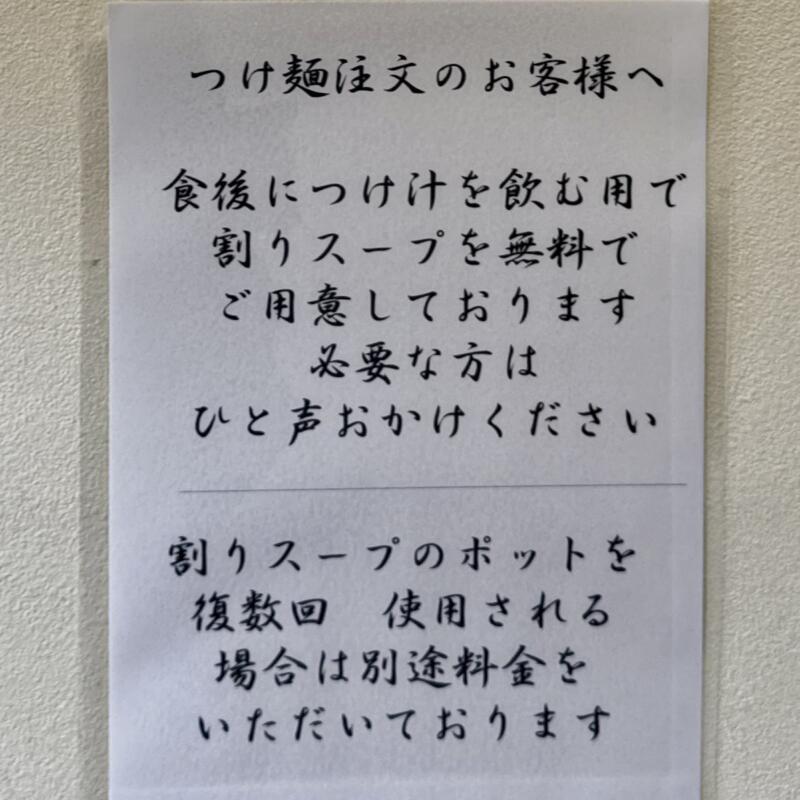 つけ麺注文のお客様へ
食後につけ汁を飲む用で
割りスープを無料で
ご用意しております
必要な方は
ひと声おかけください
割りスープのポットを
復数回　使用される
場合は別途料金を
いただいております